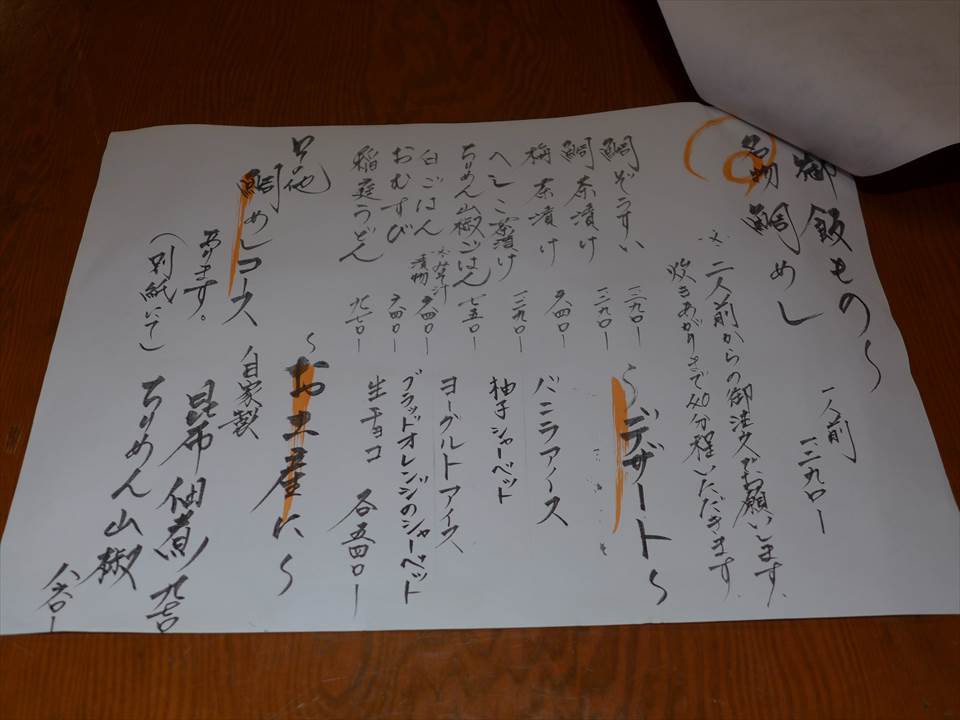 御飯もの〜
名物 鯛めし 一人前 一二九〇ー
二人前からの御注文でお願いします。
炊きあがりまで40分程いただきます。
鯛ぞうすい 一二九〇ー
鯛茶漬け 一二九〇ー
梅茶漬け 八四〇ー
へしこ茶漬け 一二九〇ー
ちりめん山椒ごはん 七五〇ー
白ごはん 漬物 六四〇ー
おむすび 六四〇ー
稲庭うどん 九七〇ー
〜デザート〜
バニラアイス
柚子シャーベット
ヨーグルトアイス
ブラッドオレンジのシャーベット
生チョコ 各五四〇ー
鯛めしコース
あります。
(別紙にて)
〜お土産に〜
自家製
昆布佃煮
ちりめん山椒